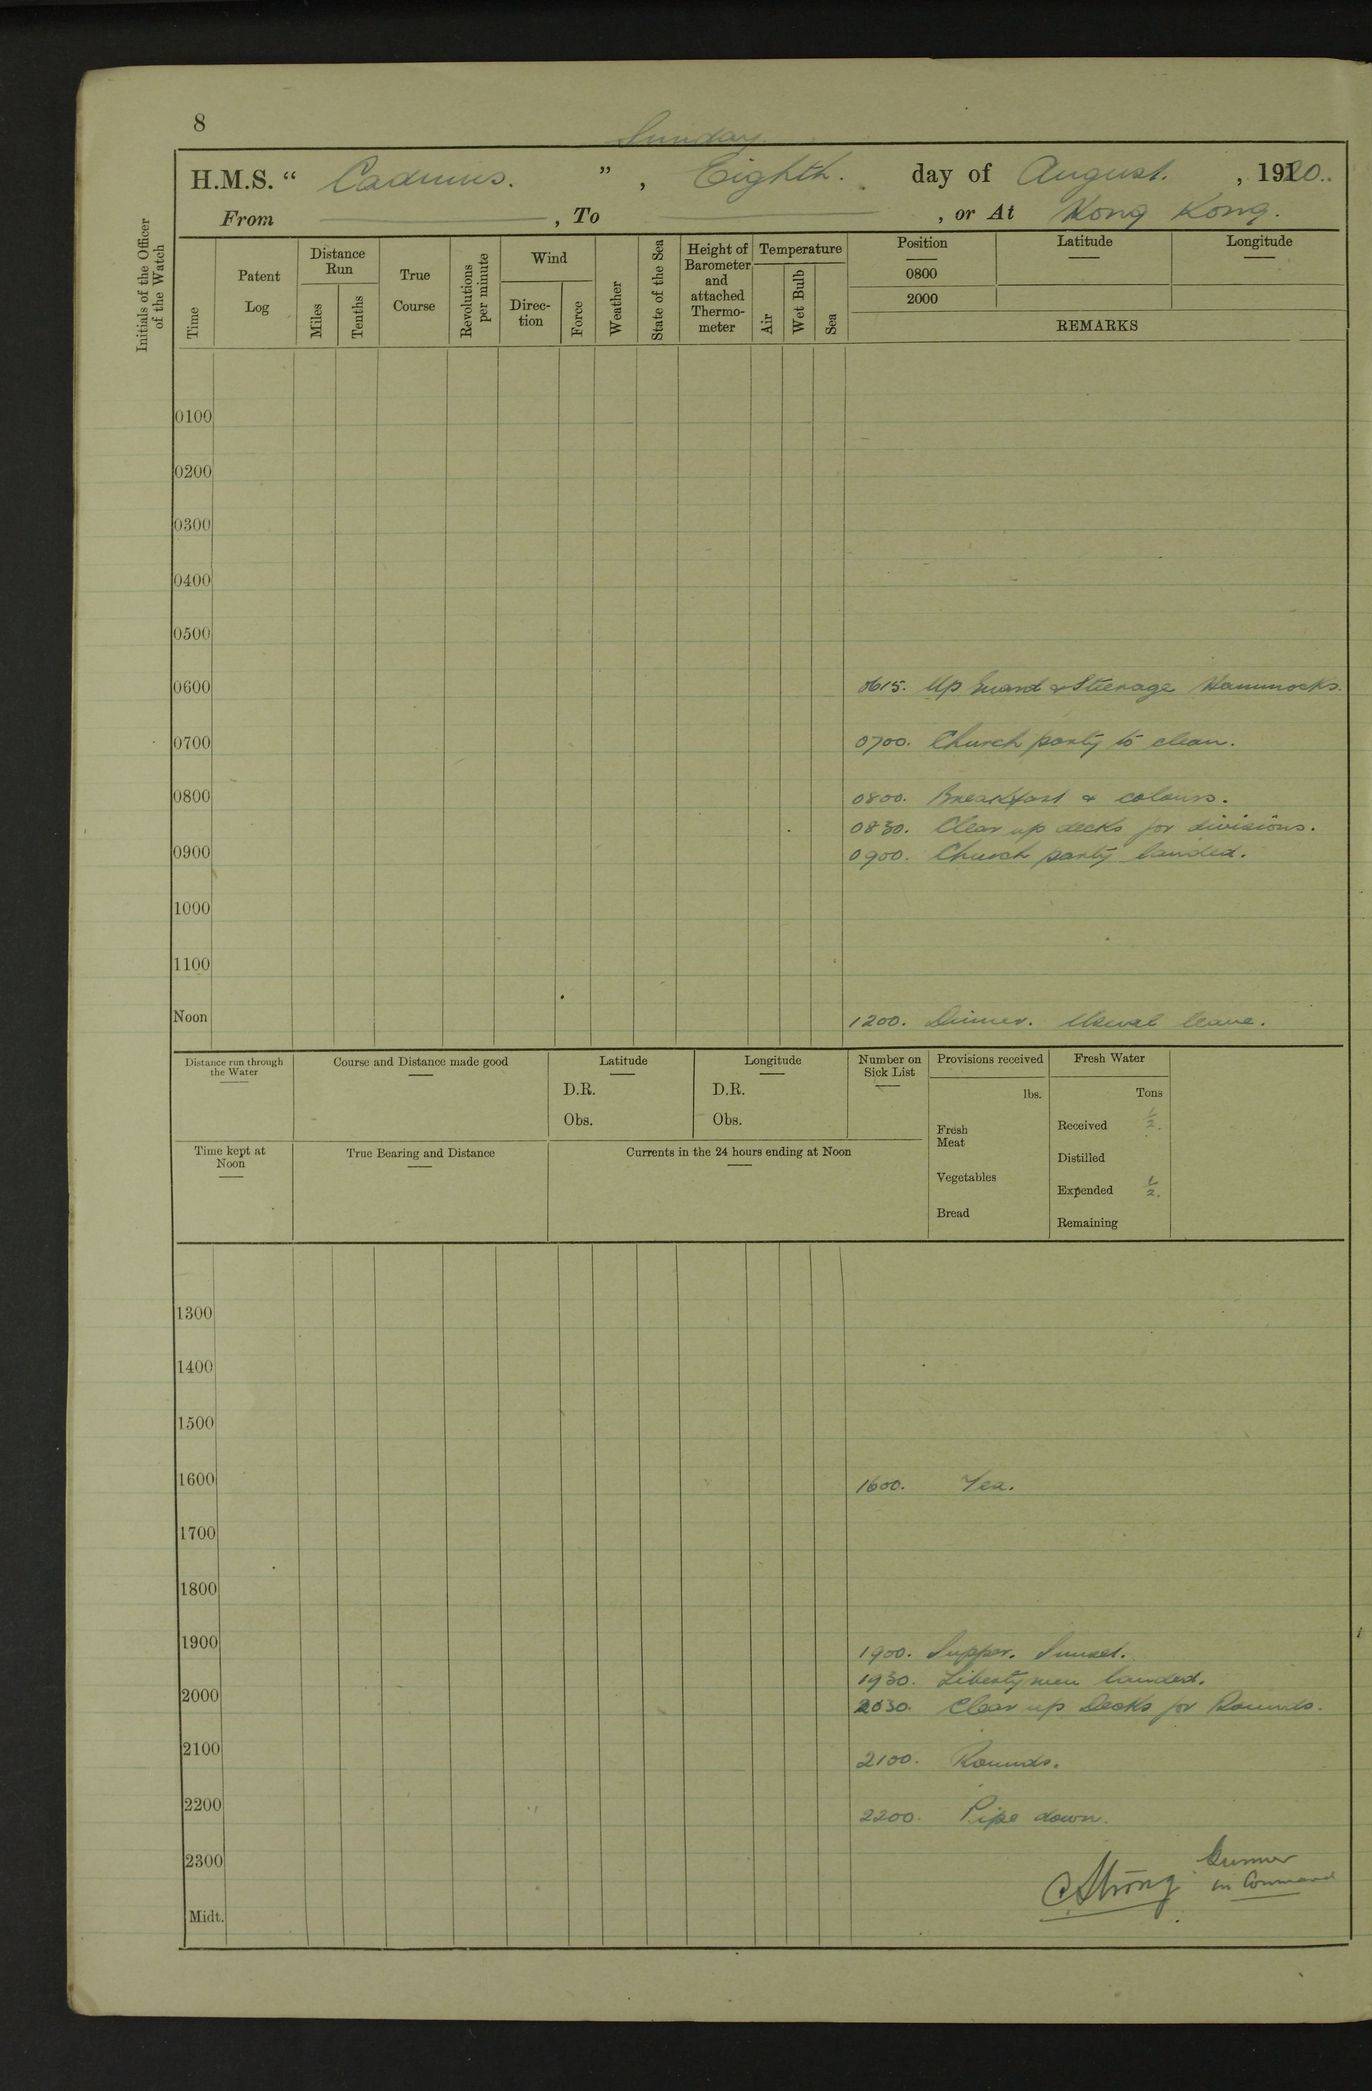 8
Sunday
H.M.S. “ Cadmus. ” , Eighth. day of August. , 1920.
From , To , or At Hong Kong.
Initials of the Officer of the Watch
Time
Patent Log
Distance Run
Miles
Tenths
True Course
Revolutions per minute
Wind
Direc-tion
Force
Weather
State of the Sea
Height of Barometer and attached Thermo-meter
Temperature
Air
Wet Bulb
Sea
Position
0800
2000
Latitude
Longitude
REMARKS
0100
0200
0300
0400
0500
0600
0615. Up Guard & Steerage Hammocks.
0700
0700. Church party to clean.
0800
0800. Breakfast & colours.
0830. Clear up decks for divisions.
0900
0900. Church party landed.
1000
1100
Noon
1200. Dinner. Usual leave.
Distance run through the Water
Course and Distance made good
Latitude
D.R.
Obs.
Longitude
D.R.
Obs.
Number on Sick List
Provisions received
lbs.
Fresh Meat
Vegetables
Bread
Fresh Water
Tons
Received ½.
Distilled
Expended ½.
Remaining
Time kept at Noon
True Bearing and Distance
Currents in the 24 hours ending at Noon
1300
1400
1500
1600
1600. Tea.
1700
1800
1900
1900. Supper. Sunset.
1930. Libertymen landed.
2000
2030. Clear up Decks for Rounds.
2100
2100. Rounds.
2200
2200. Pipe down.
2300
C Strong Gunner
in Command
Midt.